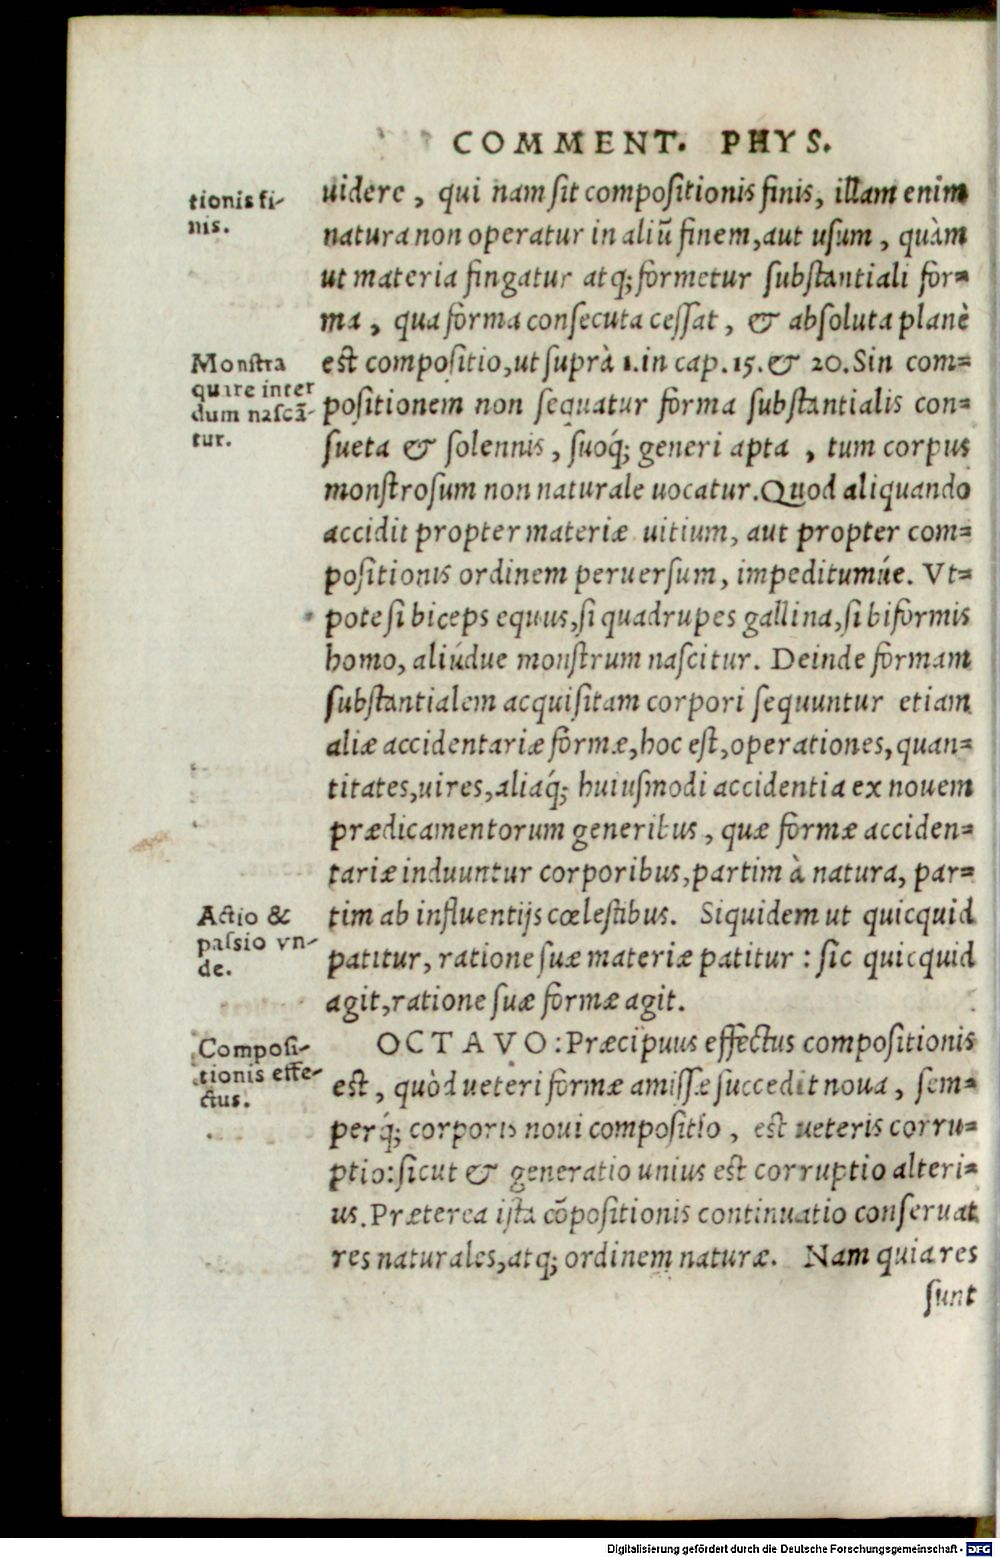 COMMENT. PHYS.
tionis fi-
nis.
uidere, qui nam sit compositionis finis, illam enim
natura non operatur in aliũ finem, aut usum, quàm
ut materia fingatur atq; formetur substantiali for=
ma, qua forma consecuta cessat, & absoluta planè
est compositio, ut suprà 1. in cap. 15. & 20. Sin com=
Monstra
quare inter
dum nascã-
tur.
positionem non sequatur forma substantialis con=
sueta & solennis, suoq́; generi apta, tum corpus
monstrosum non naturale uocatur. Quod aliquando
accidit propter materiæ uitium, aut propter com=
positionis ordinem peruersum, impeditumúe. Vt=
pote si biceps equus, si quadrupes gallina, si biformis
homo, aliúdue monstrum nascitur. Deinde formam
substantialem acquisitam corpori sequuntur etiam
aliæ accidentariæ formæ, hoc est, operationes, quan=
titates, uires, aliaq́; huiusmodi accidentia ex nouem
prædicamentorum generibus, quæ formæ acciden=
tariæ induuntur corporibus, partim à natura, par=
Actio &
passio vn-
de.
tim ab influentijs cœlestibus. Siquidem ut quicquid
patitur, ratione suæ materiæ patitur: sic quicquid
agit, ratione suæ formæ agit.
Composi-
tionis effe-
ctus.
OCTAVO: Præcipuus effectus compositionis
est, quòd ueteri formæ amissæ succedit noua, sem=
perq́; corporis noui compositio, est ueteris corru=
ptio: sicut & generatio unius est corruptio alteri=
us. Præterea ista cõpositionis continuatio conseruat
res naturales, atq; ordinem naturæ. Nam quia res
sunt
Digitalisierung gefördert durch die Deutsche Forschungsgemeinschaft - DFG